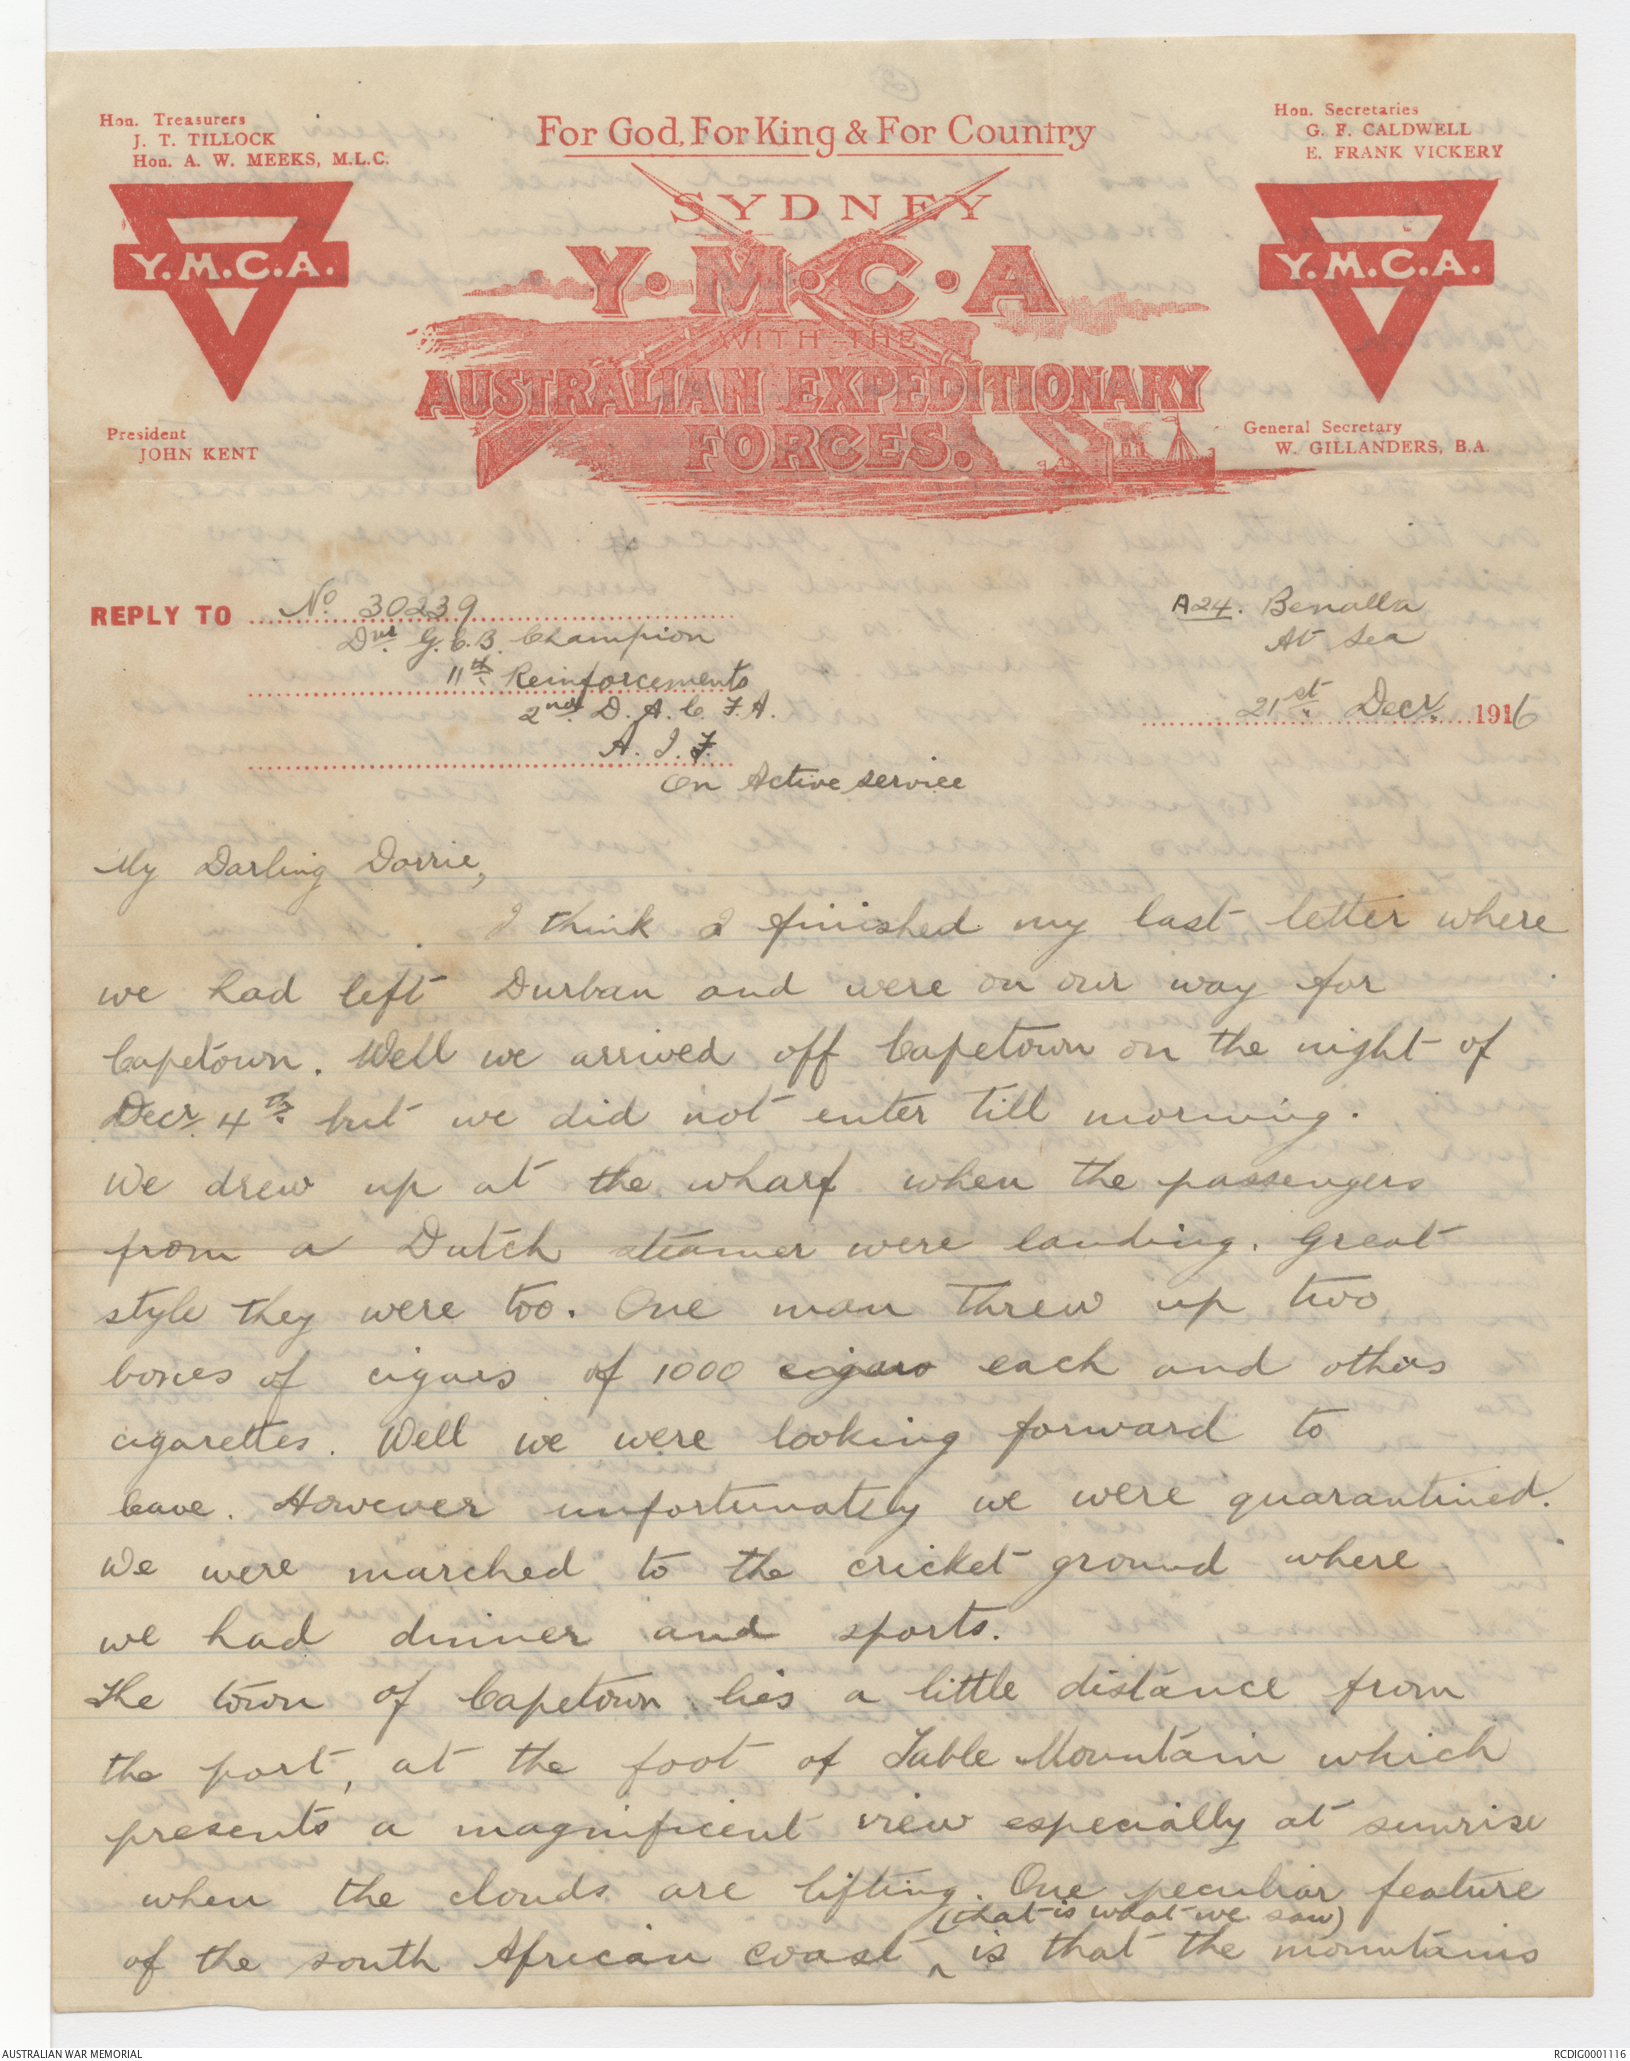 Hon. Treasurers
J. T. TILLOCK
Hon. A. W. MEEKS, M.L.C.
For God, For King & For Country
Hon. Secretaries
G. F. CALDWELL
E. FRANK VICKERY
SYDNEY
Y.M.C.A
WITH THE
AUSTRALIAN EXPEDITIONARY
FORCES.
Y.M.C.A.
Y.M.C.A.
President
JOHN KENT
General Secretary
W. GILLANDERS, B.A.
REPLY TO No. 30239
Dvr. G.C.B. Champion
11th Reinforcements
2nd D. A. C. F. A.
A. I. F.
On Active service
A24. Benalla
At Sea
21st Decr. 1916
My Darling Dorrie,
I think I finished my last letter where
we had left Durban and were on our way for
Capetown. Well we arrived off Capetown on the night of
Decr. 4th but we did not enter till morning.
We drew up at the wharf when the passengers
from a Dutch steamer were landing. Great
style they were too. One man threw up two
boxes of cigars of 1000 cigars each and others
cigarettes. Well we were looking forward to
leave. However unfortunately we were quarantined.
We were marched to the cricket ground where
we had dinner and sports.
The town of Capetown lies a little distance from
the port, at the foot of Table Mountain which
presents a magnificent view especially at sunrise
when the clouds are lifting. One peculiar feature
(that is what we saw)
of the south African coast ^ is that the mountains
AUSTRALIAN WAR MEMORIAL
RCDIG0001116